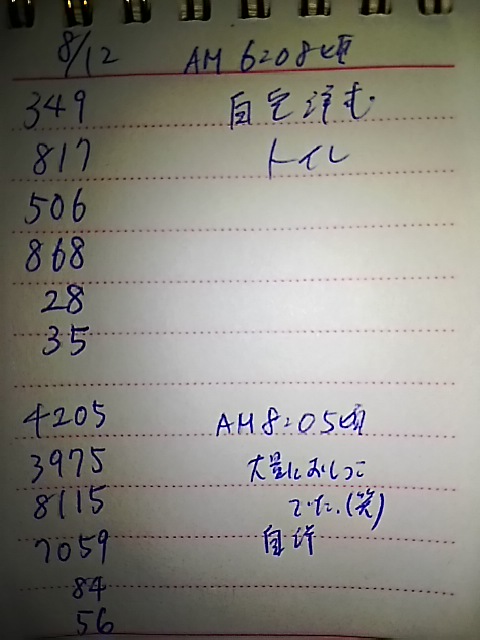 8/12 AM 6:08頃
349 自宅洋式
817 トイレ
506
868
28
35
4205 AM 8:05頃
3975 大量におしっこ
8115 でた.(笑)
7059 自洋
84
56